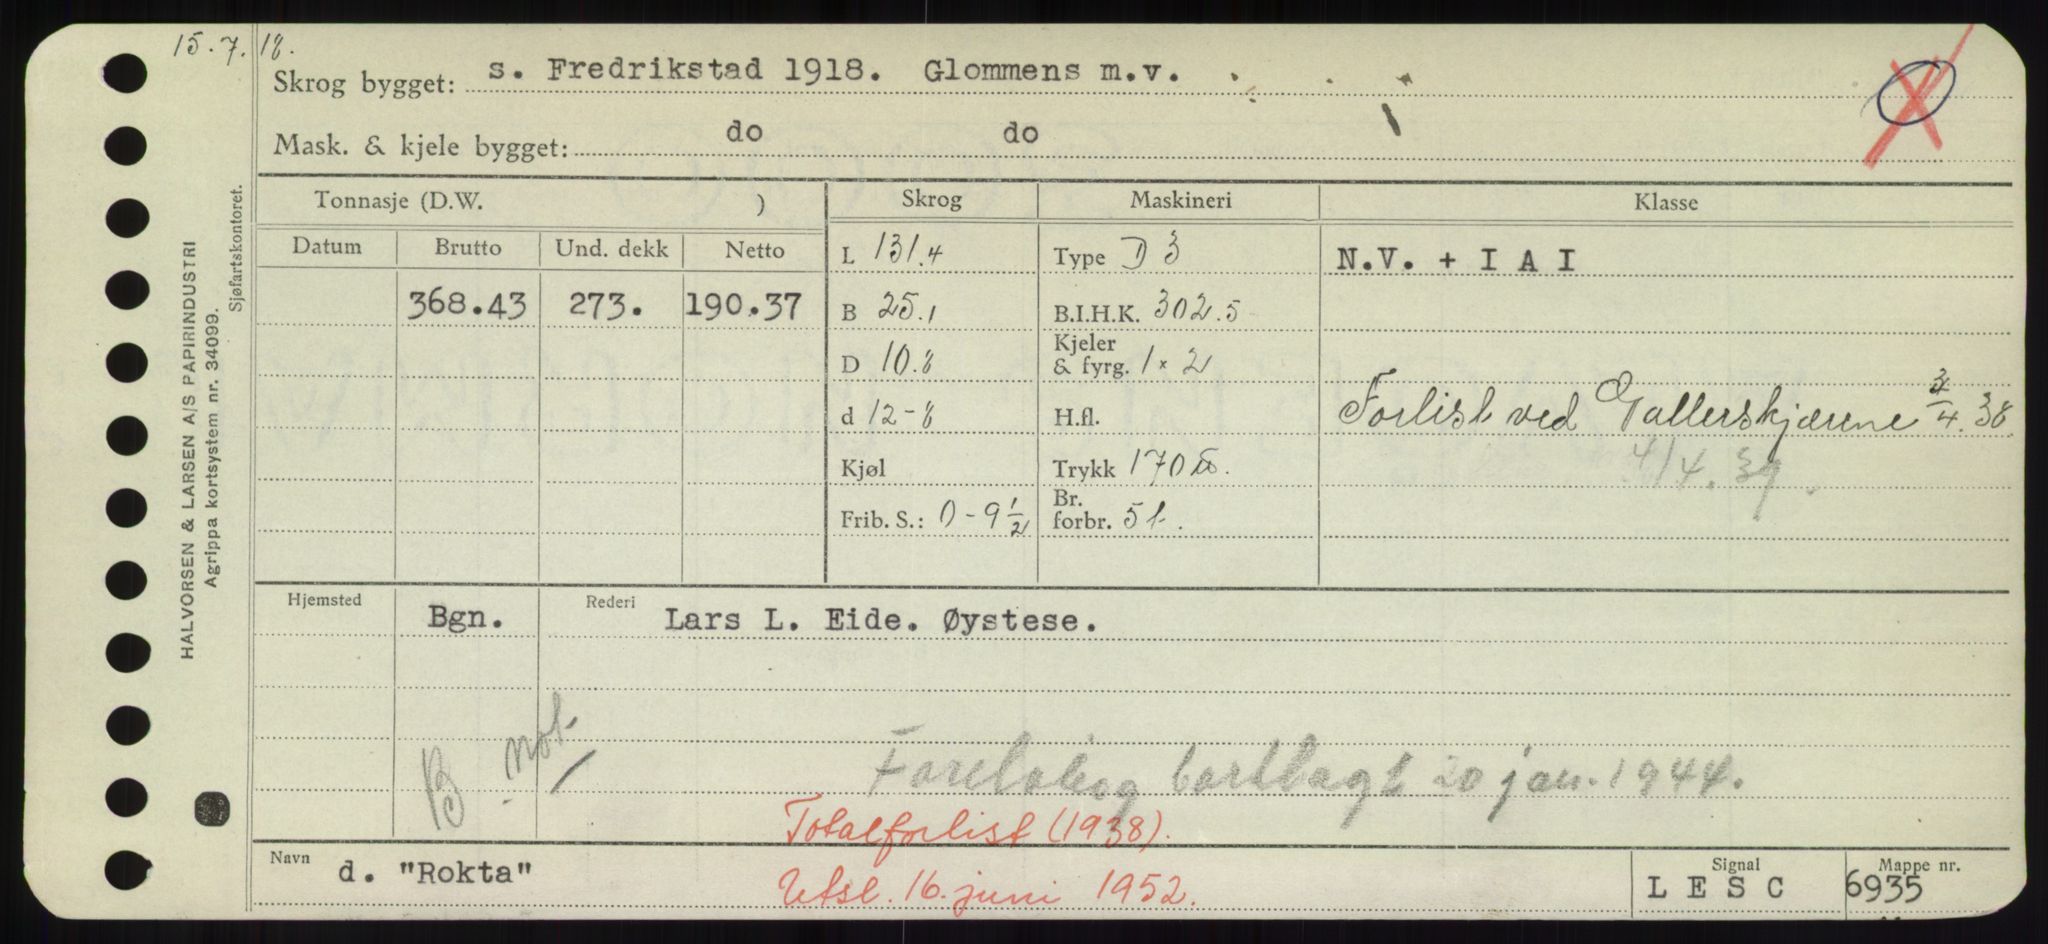 15.7.18.
Skrog bygget: s. Fredrikstad 1918. Glommens m.v.
Mask. & kjele bygget: do do
Tonnasje (D.W. ) Skrog Maskineri Klasse
Datum Brutto Und. dekk Netto L 131.4 Type D 3 N.V. + I A I
368.43 273. 190.37 B 25.1 B.I.H.K. 302.5
D 10.8 Kjeler & fyrg. 1 x 2
d 12-8 H.fl. Forlist ved Gallerskjærene 3/4.38.
Kjøl Trykk 170 lb. 4/4.39.
Frib. S.: 0-9 1/2 Br. forbr. 5 t.
Hjemsted Bgn. Rederi Lars L. Eide. Øystese.
B not.
Foreløbig bortlagt 20 jan. 1944.
Totalforlist (1938).
Utsl. 16. juni 1952.
Navn d. "Rokta" Signal LESC Mappe nr. 6935
HALVORSEN & LARSEN A/S PAPIRINDUSTRI
Agrippa kortsystem nr. 34099.
Sjøfartskontoret.